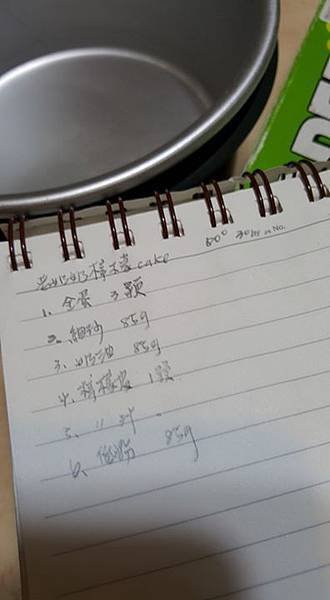 老奶奶檸檬cake
1. 全蛋 3顆
2. 細砂 85g
3. 奶油 85g
4. 檸檬皮 1顆
5. 〃 汁 〃
6. 低粉 85g